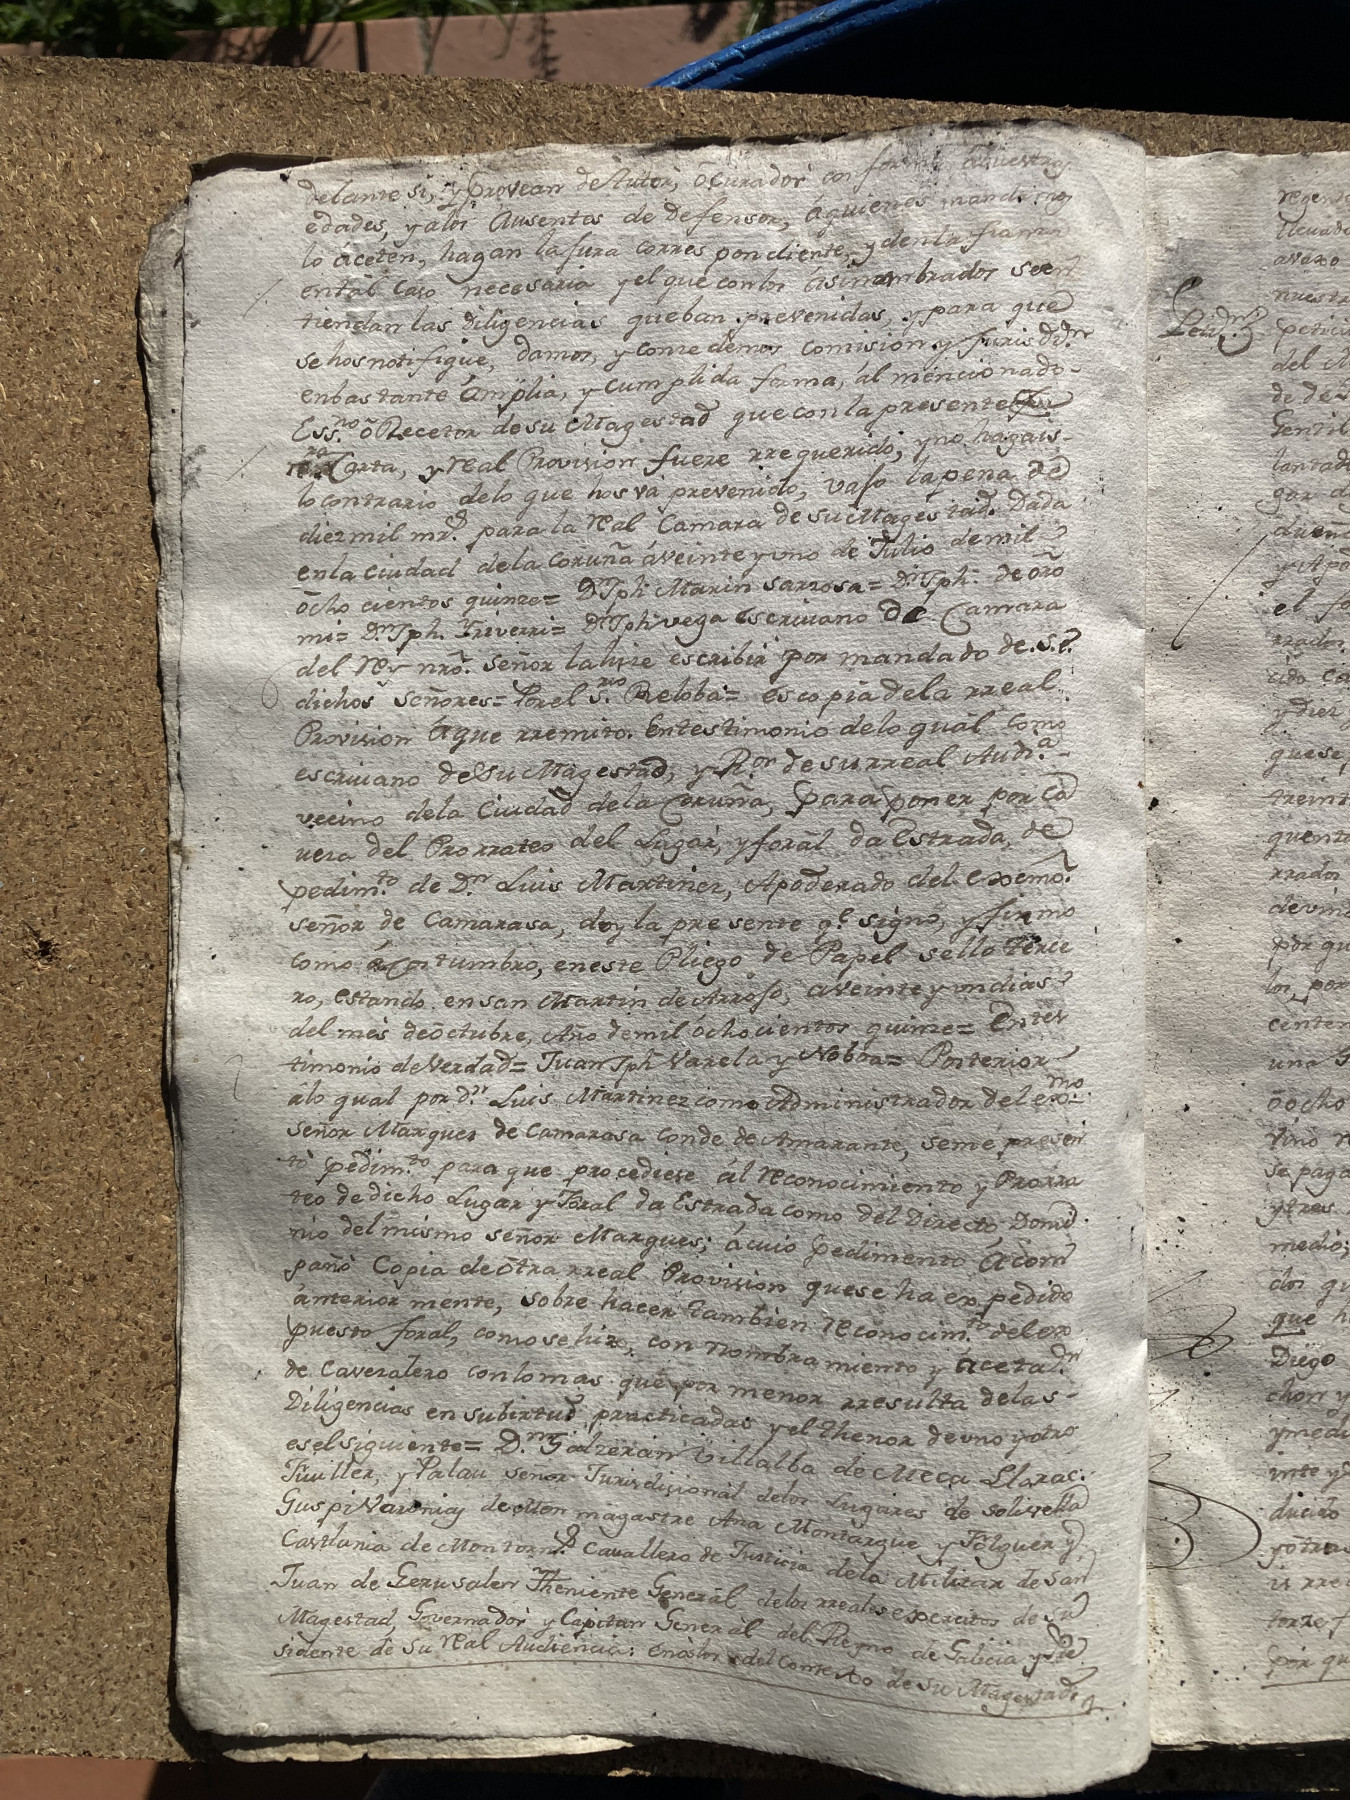 delante si, y provean de Tutor, ó Curador con forme á nuestras
edades, y alos Ausentes de defensor, á quienes mandamos
lo áceten, hagan la jura corres pondiente, y den la fianza
ental caso necesaria y el que con los ási nombrados se en
tiendan las diligencias que ban prevenidas, y para que
se hos notifique, damos, y conze demos comision y jurisdi.on
enbastante ámplia, y cumplida forma, ál mencionado
Ess.no ó Recetor de su Magestad que con la presente
Carta, y real Provision fuere rrequerido, y no hagais
lo contrario delo que hos vá prevenido, vajo la pena de
diez mil mrs. para la real Camara de su Magestad. Dada
en la Ciudad dela Coruña á veinte y uno de Julio de mil
ócho cientos quinze= Dn Jph Marin Sarrosa= Dn Jph. de oro
mi= Dn Jph. Yriverri= Dn Jph vega Escrivano de Camara
del Rey nrõ. señor la hize escribir por mandado de.s.s
dichos señores= Por el s.rio Reloba= es copia dela rreal
Provision á que rremito. En testimonio delo qual como
escrivano de Su Magestad, y R.or de su rreal Audi.a
vecino dela Ciudad dela Coruña, para poner por Ca
veza del Prorrateo del Lugar, y forál da Estrada, de
pedim.to de D.n Luis Martinez, Apoderado del exsmo.
señor de Camarasa, doy la presente q.e signo, y firmo
como á Costumbro, en este Pliego de Papel sello Terze
ro, estando en san Martin de Arrojo, a veinte y un dias
del mes de óctubre, Año de mil ócho cientos quinze= En tes
timonio de Verdad= Juan Jph Varela y Nobóa= Posterior
álo qual por d.n Luis Martinez como Administrador del exmo
señor Marques de Camarasa Conde de Amarante, se me presen
tó pedim.to para que procediese ál reconocimiento y Prorra
teo de dicho Lugar y Foral da Estrada como del Directo Domi
nio del mismo señor Marques; á cuio pedimento ácom
pañó Copia de ótra rreal Provision que se ha expedido
ánterior mente, sobre hacer tambien reconocim.to del ex
puesto foral, como se hizo, con nombramiento y áceta.on
de Cavezalero con lo mas que por menor rresulta delas
Diligencias en su birtud practicadas y el thenor de uno y otro
es el siguiente= D.n Galzeran Villalba de Meca Llorac
Juiller, y Palau señor Jurisdisional delos Lugares de solivella
Guspi Varonias de Mon magastre Ana Montargue y Folguer y
Castlania de Montorn.s Cavallero de Justicia dela Militar de San
Juan de Gerusalen Theniente General delos rreales exercitos de su
Magestad, Governador y Capitan General del Reyno de Galicia y Pre
sidente de su real Audiencia: enoslos del Consexo de su Magestad
regente
llevado
avaxo
nuestr
Petici
del M
de de
Gentil
lantad
gar d
dueñ
y Apo
el fo
rrados
cido ca
y diez
que se
treint
quenta
rrados
devino
por qu
los, por
centen
una G
ó ocho
vino
se paga
y tres
medio;
dos qu
que h
Diego
chon y
y medi
inte y
ducido
y otra
is rre
torze f
por qu